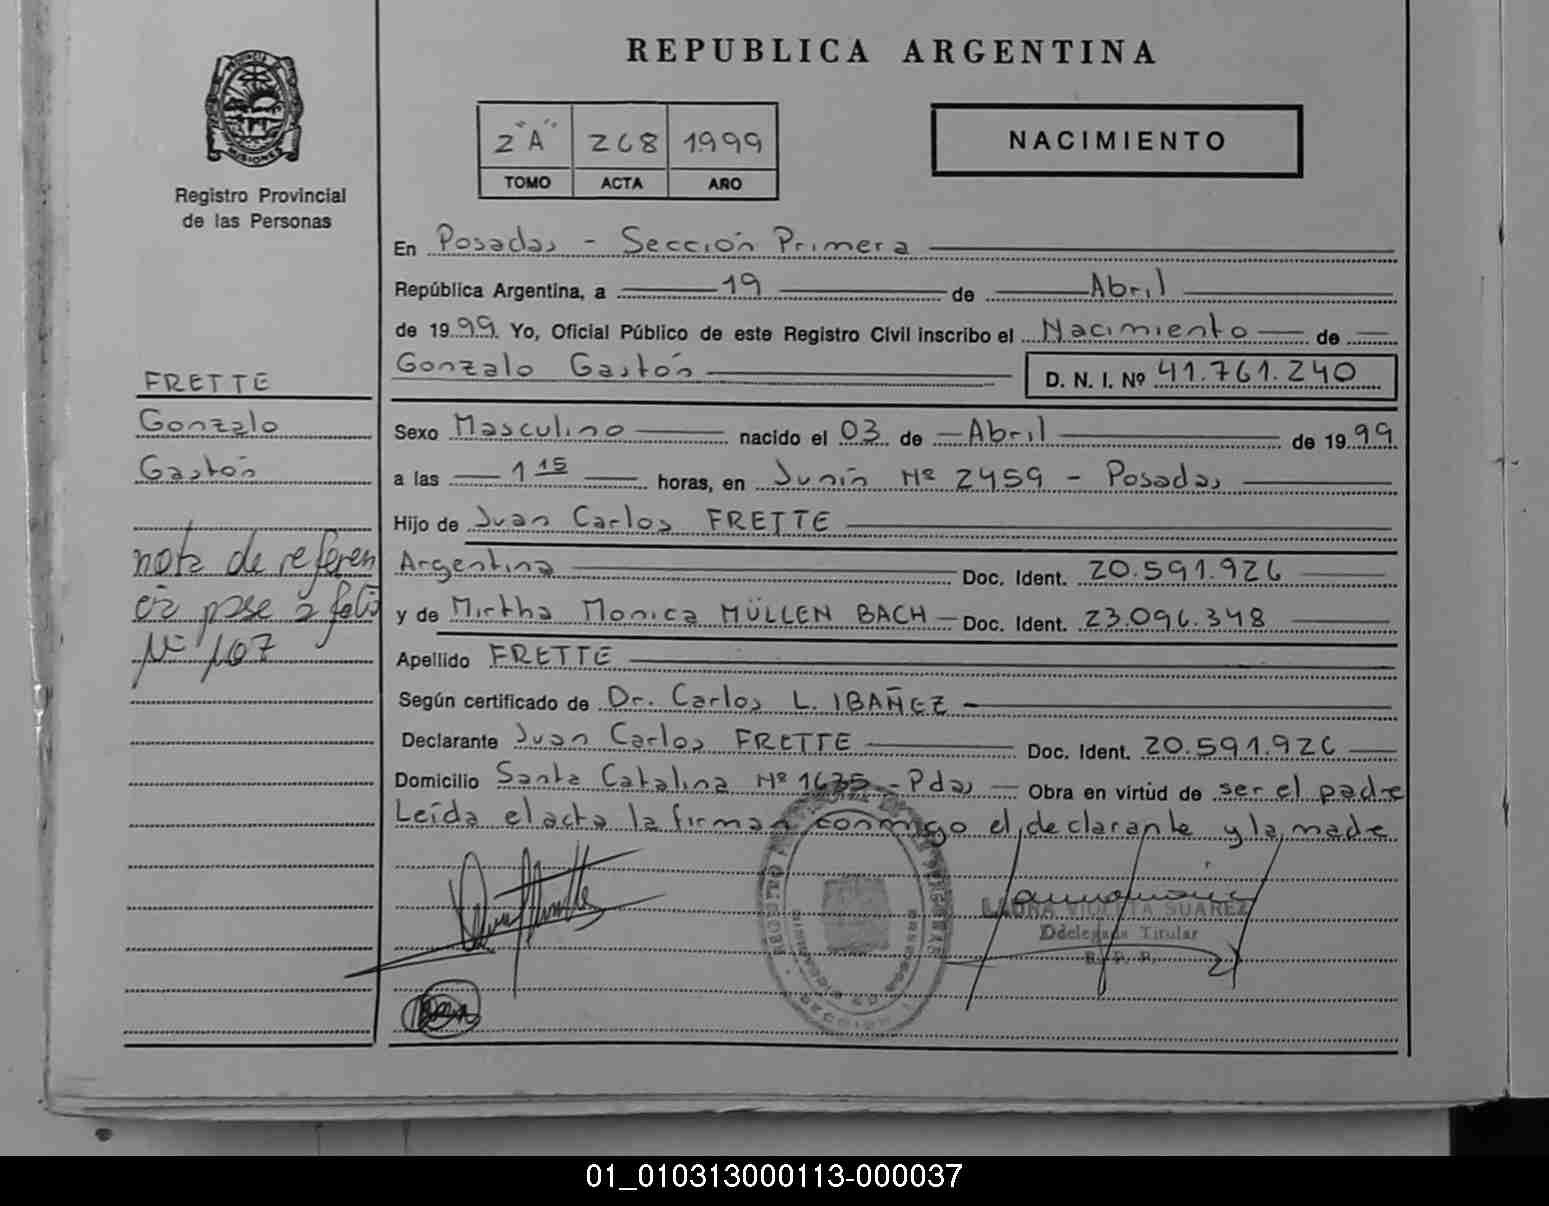 REPUBLICA ARGENTINA
MISIONES
Registro Provincial
de las Personas
2"A" 268 1999
TOMO ACTA AÑO
NACIMIENTO
En Posadas - Sección Primera
República Argentina, a 19 de Abril
de 1999. Yo, Oficial Público de este Registro Civil inscribo el Nacimiento de
Gonzalo Gastón D. N. I. Nº 41.761.240
FRETTE
Gonzalo
Gastón
nota de referen
cia pase a folio
Nº 107
Sexo Masculino nacido el 03 de Abril de 1999
a las 1 15 horas, en Junín Nº 2459 - Posadas
Hijo de Juan Carlos FRETTE
Argentina Doc. Ident. 20.591.926
y de Mirtha Monica MÜLLEN BACH Doc. Ident. 23.096.348
Apellido FRETTE
Según certificado de Dr. Carlos L. IBAÑEZ
Declarante Juan Carlos FRETTE Doc. Ident. 20.591.926
Domicilio Santa Catalina Nº 1635 - Pdas Obra en virtud de ser el padre
Leída el acta la firman conmigo el declarante y la madre
LAURA VIOLETA SUAREZ
Ddelegada Titular
R. P. P.
01_010313000113-000037